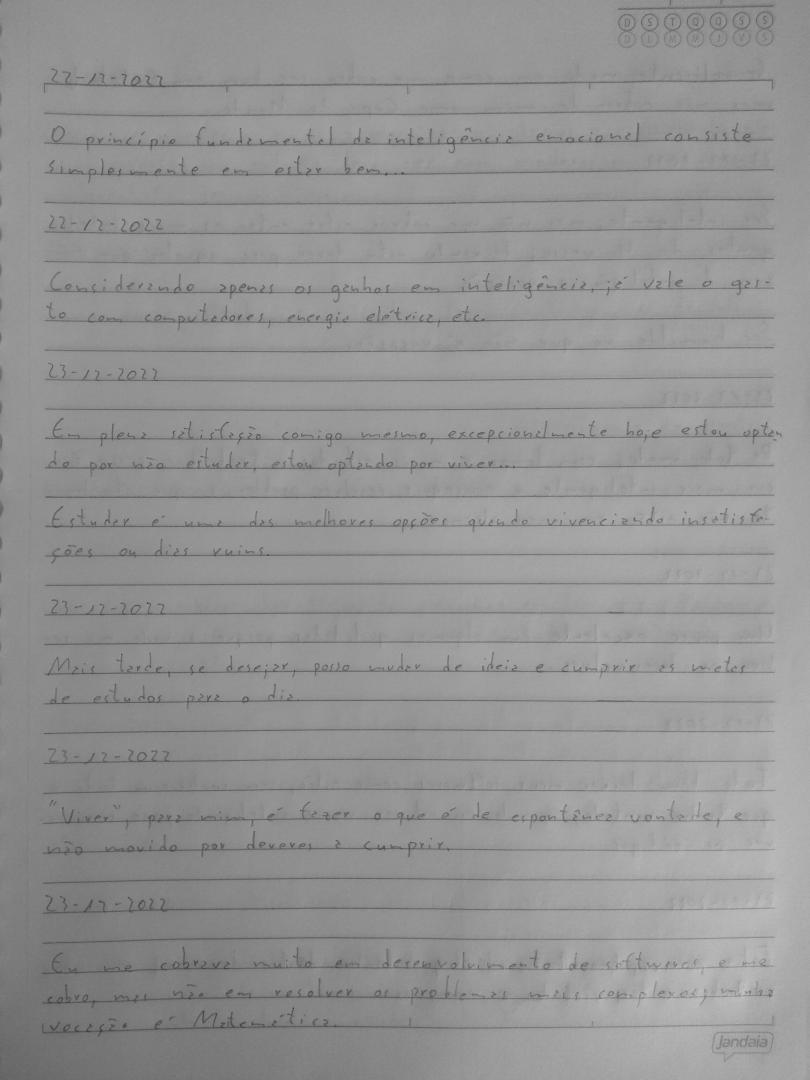 D S T Q Q S S
22-12-2022
O princípio fundamental da inteligência emocional consiste
simplesmente em estar bem...
22-12-2022
Considerando apenas os ganhos em inteligência, já vale o gas-
to com computadores, energia elétrica, etc.
23-12-2022
Em plena satisfação comigo mesmo, excepcionalmente hoje estou optan
do por não estudar, estou optando por viver...
Estudar é uma das melhores opções quando vivenciando insatisfa-
ções ou dias ruins.
23-12-2022
Mais tarde, se desejar, posso mudar de ideia e cumprir as metas
de estudos para o dia.
23-12-2022
"Viver", para mim, é fazer o que é de espontânea vontade, e
não movido por deveres a cumprir.
23-12-2022
Eu me cobrava muito em desenvolvimento de softwares, e me
cobro, mas não em resolver os problemas mais complexos; minha
vocação é Matemática.
Jandaia